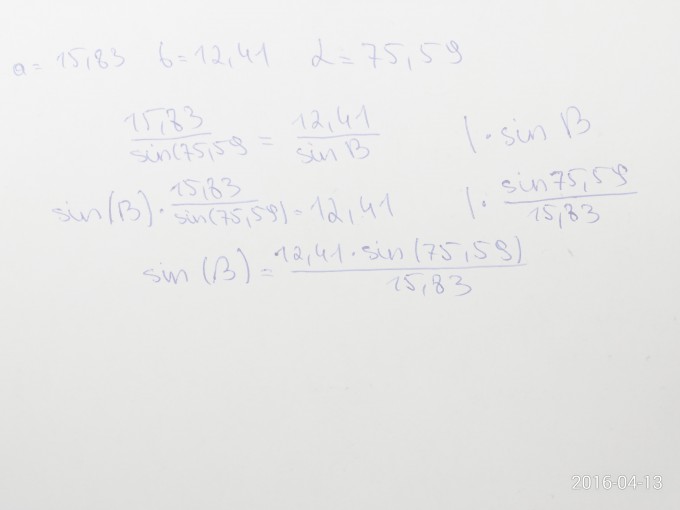 a = 15,83 b=12,41 α=75,59
15,83 / sin(75,59 = 12,41 / sin β | · sin β
sin(β) · 15,83 / sin(75,59) = 12,41 | · sin75,59 / 15,83
sin (β) = 12,41·sin(75,59) / 15,83
2016-04-13